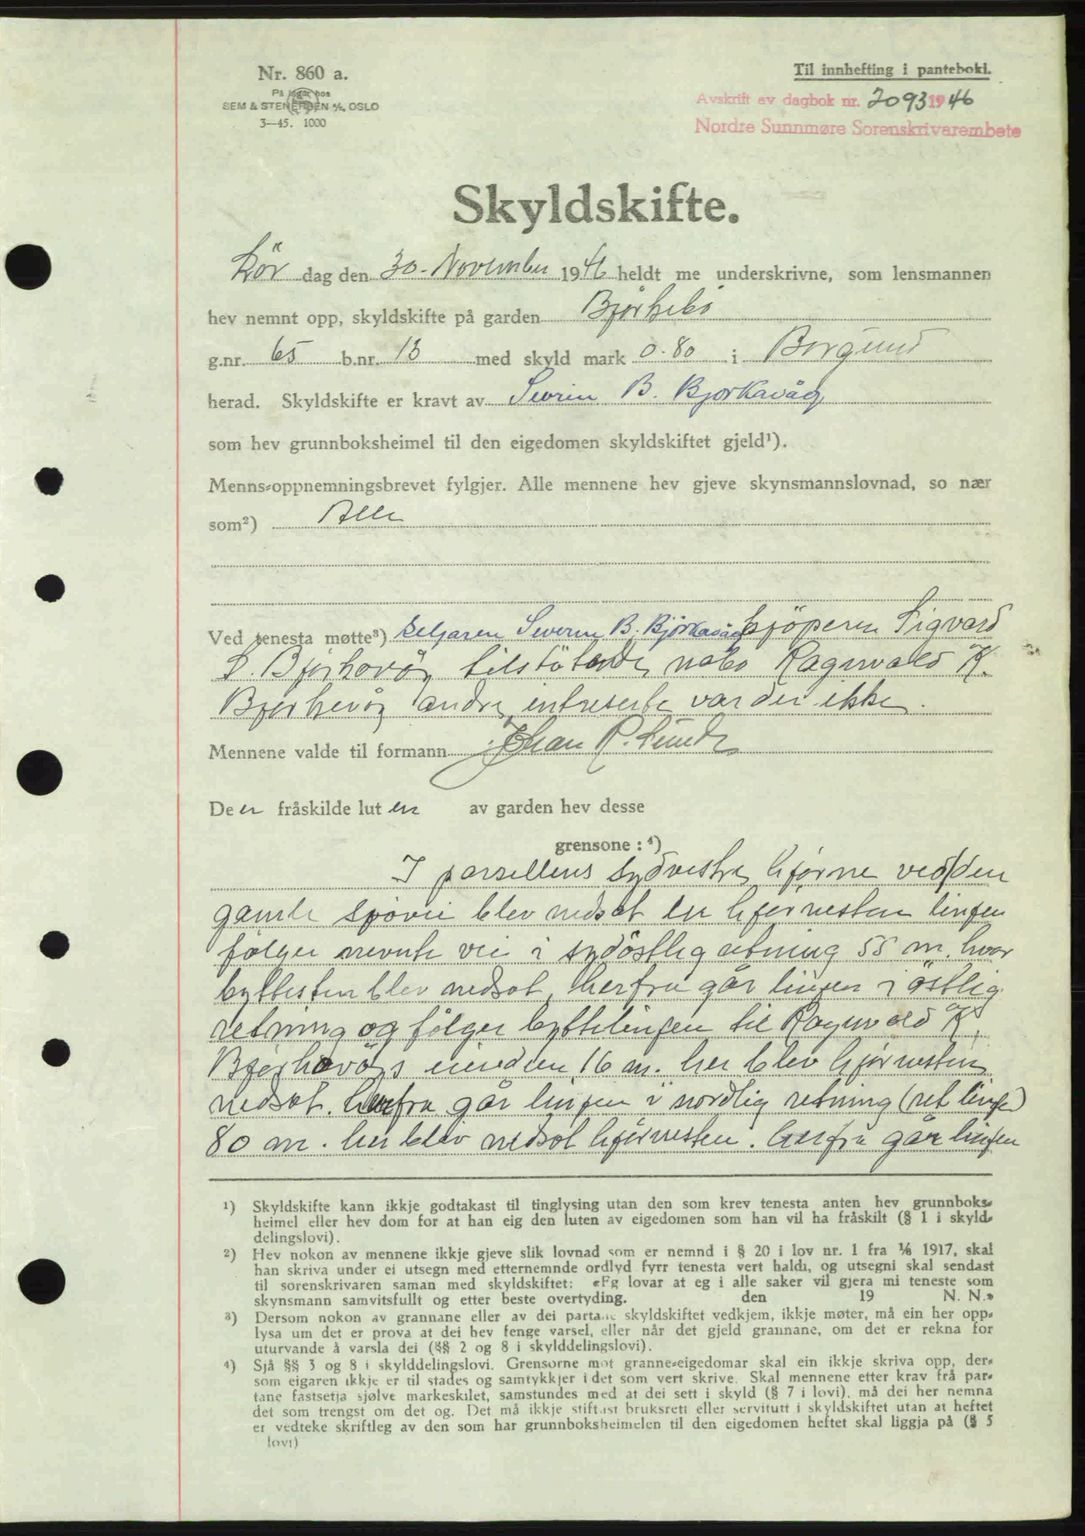 Nr. 860 a.
På lager hos
SEM & STENERSEN A/S, OSLO
3—45. 1000
Til innhefting i panteboki.
Avskrift av dagbok nr. 2093 1946
Nordre Sunnmøre Sorenskrivarembete
Skyldskifte.
Lør dag den 30. November 1946 heldt me underskrivne, som lensmannen
hev nemnt opp, skyldskifte på garden Bjørkebö
g.nr. 65 b.nr. 13 med skyld mark 0.80 i Borgund
herad. Skyldskifte er kravt av Severin B. Bjørkavåg
som hev grunnboksheimel til den eigedomen skyldskiftet gjeld¹).
Menns-oppnemningsbrevet fylgjer. Alle mennene hev gjeve skynsmannslovnad, so nær
som²) Alle
Ved tenesta møtte³) Seljaren Severin B. Bjørkavåg kjöperen Sigvard
S. Bjørkavåg tilstötende nabo Ragnvald K.
Bjørkevåg andre intreserte var der ikke.
Mennene valde til formann Johan P. Sunde
De en fråskilde lut en av garden hev desse
grensone :⁴)
I parsellens sydvestre hjørne ved den
gamle vei blev nedsat en hjørnesten linjen
følger nevnte vei i sydöstlig retning 55 m. hvor
byttesten blev nedsat, herfra går linjen i östlig
retning og fölger byttelinjen til Ragnvald K.
Bjørkavågs eiendom 16 m. her blev hjørnesten
nedsat. herfra går linjen i nordlig retning (ret linje)
80 m. her blev nedsat hjørnesten. herfra går linjen
¹) Skyldskifte kann ikkje godtakast til tinglysing utan den som krev tenesta anten hev grunnboks-
heimel eller hev dom for at han eig den luten av eigedomen som han vil ha fråskilt (§ 1 i skyld-
delingslovi).
²) Hev nokon av mennene ikkje gjeve slik lovnad som er nemnd i § 20 i lov nr. 1 fra 1/6 1917, skal
han skriva under ei utsegn med etternemnde ordlyd fyrr tenesta vert haldi, og utsegni skal sendast
til sorenskrivaren saman med skyldskiftet: «Eg lovar at eg i alle saker vil gjera mi teneste som
skynsmann samvitsfullt og etter beste overtyding. den 19 N. N.»
³) Dersom nokon av grannane eller av dei partane skyldskiftet vedkjem, ikkje møter, må ein her opp-
lysa um det er prova at dei hev fenge varsel, eller når det gjeld grannane, om det er rekna for
uturvande å varsla dei (§§ 2 og 8 i skylddelingslovi).
⁴) Sjå §§ 3 og 8 i skylddelingslovi. Grensorne mot granne-eigedomar skal ein ikkje skriva opp, der-
som eigaren ikkje er til stades og samtykkjer i det som vert skrive. Skal mennene etter krav frå par-
tane fastsetja sjølve markeskilet, samstundes med at dei sett i skyld (§ 7 i lovi), må dei her nemna
det som trengst om det og. Det må ikkje stiftast bruksrett eller servitutt i skyldskiftet utan at heftet
er vedteke skriftleg av den som har grunnboksheimelen til den eigedomen heftet skal liggja på (§ 5
lovi)